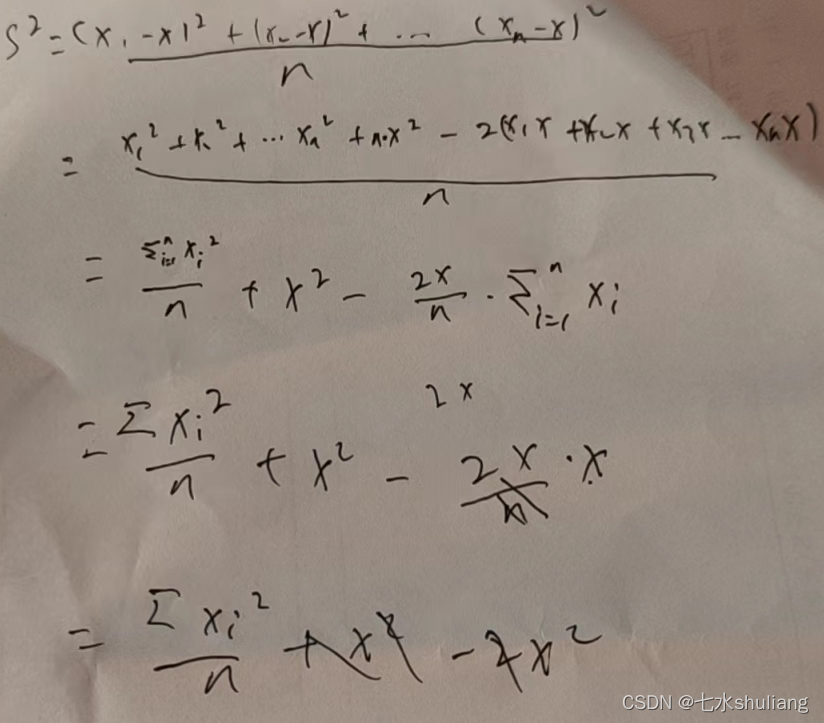 S² = (x₁ - x)² + (x₂ - x)² + ... (xₙ - x)² / n
= x₁² + x₂² + ... xₙ² + n·x² - 2(x₁x + x₂x + x₃x ... xₙx) / n
= Σᵢ₌₁ⁿ xᵢ² / n + x² - 2x / n · Σᵢ₌₁ⁿ xᵢ
2x
= Σ xᵢ² / n + x² - 2x / n · x
= Σ xᵢ² / n + x² - 2x²
CSDN @七水shuliang